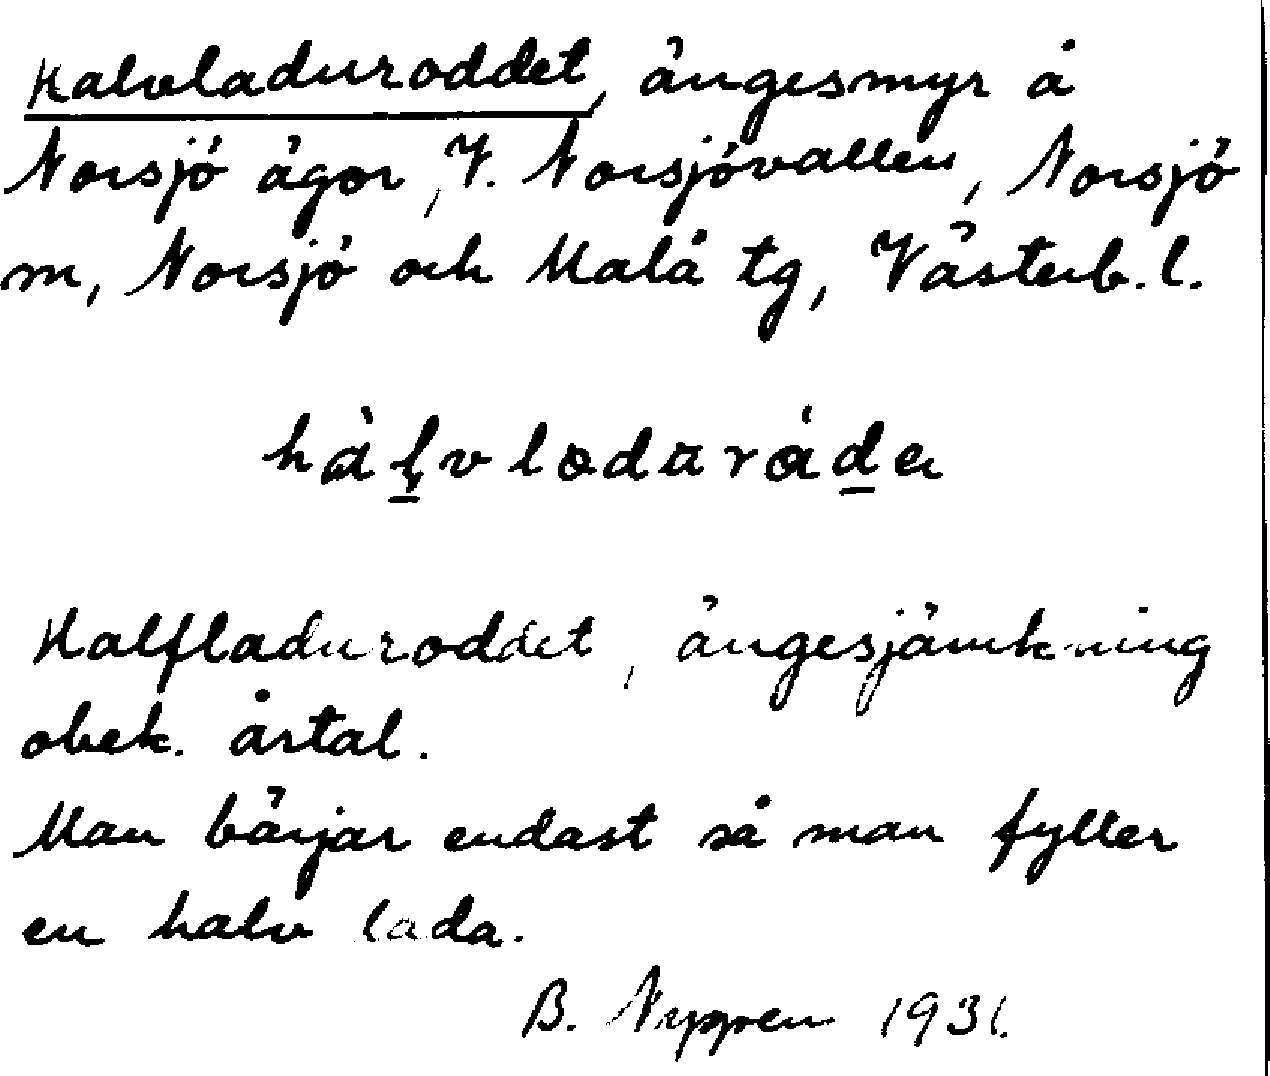 Halvladuroddet, ängesmyr å
Norsjö ägor, V. Norsjövallen, Norsjö
m, Norsjö och Malå tg, Västerb. l.
hàḷvladaráda
Halfladuroddet, ängesjämkning
obek. årtal.
Man bärjar endast så man fyller
en halv lada.
B. Nygren 1931.